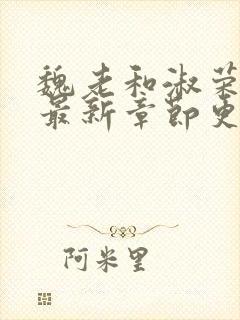 魏老和淑荣
最新章节更
阿米里